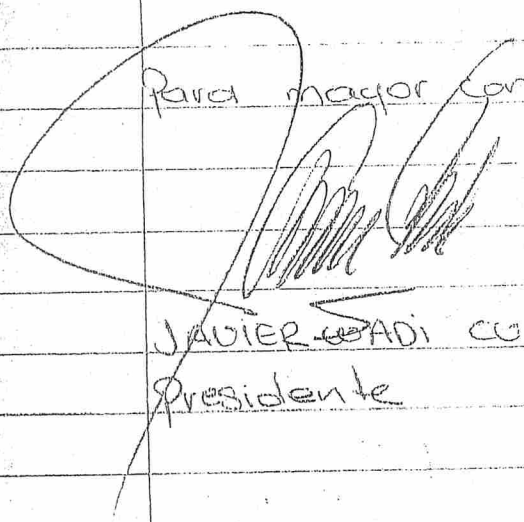 Para mayor con
JAVIER WADI CU
Presidente